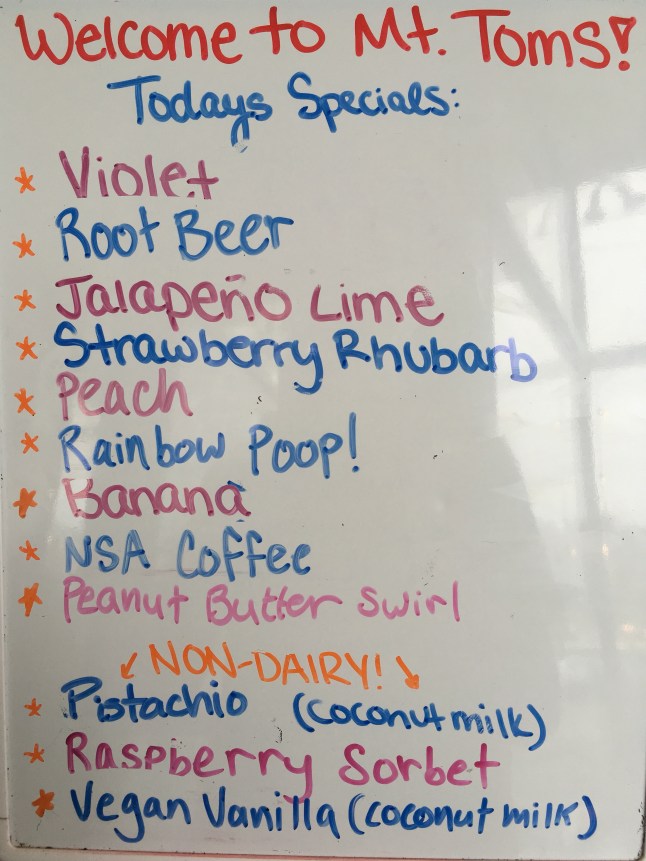 Welcome to Mt. Toms!
Todays Specials:
* Violet
* Root Beer
* Jalapeño Lime
* Strawberry Rhubarb
* Peach
* Rainbow Poop!
* Banana
* NSA Coffee
* Peanut Butter Swirl
↙ NON-DAIRY! ↘
* Pistachio (coconut milk)
* Raspberry Sorbet
* Vegan Vanilla (coconut milk)